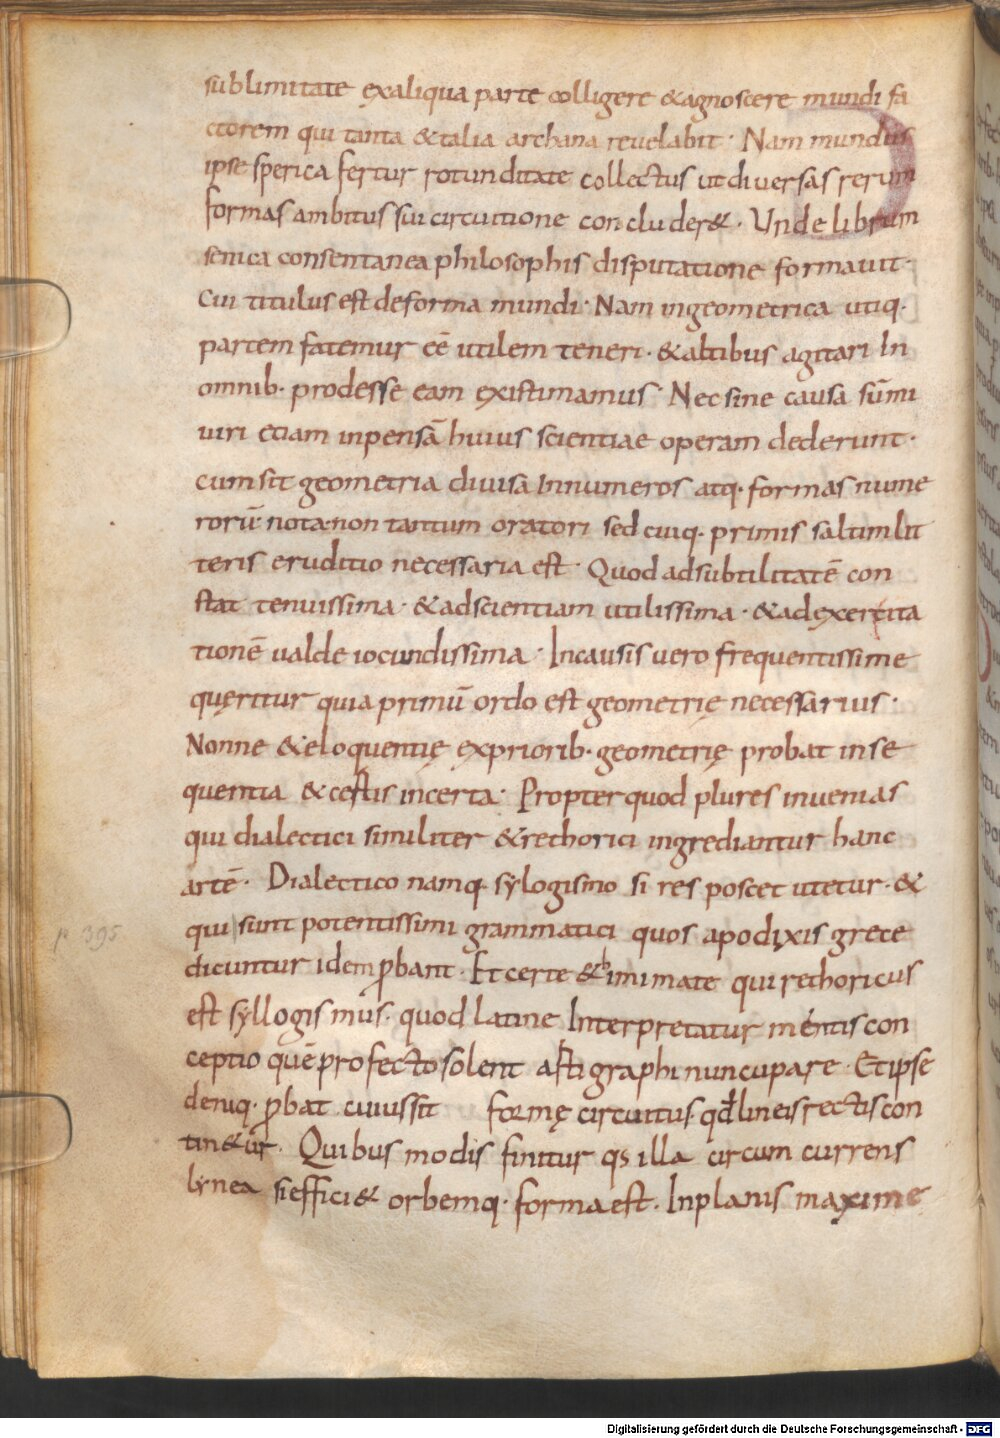 sublimitate exaliqua parte colligere &agnoscere mundi fa
ctorem qui tanta &talia archana reuelabit· Nam mundus
ipse sperica fertur rotunditate collectus utdiuersas rerum
formas ambitus sui circuitione concluder&· Unde librum
seneca consentanea philosophis disputatione formauit·
Cui titulus est deforma mundi· Nam ingeometrica utiq·
partem fatemur eē utilem teneri·&altibus agitari In
omnib· prodesse eam existimamus· Nec sine causa sūmi
uiri etiam inpensā huius scientiae operam dederunt·
cumsit geometria diuisa Innumeros atq· formas nume
rorū· nota·non tantum oratori sed cuiq· primis saltimlit
teris eruditio necessaria est· Quod adsubtilitatē con
stat tenuissima· &adscientiam utilissima· &adexercita
tionē ualde iocundissima· Incausis uero frequentissime
quęritur quia primū ordo est geometrię necessarius·
Nonne &eloquentię expriorib· geometrię probat inse
quentia &certis incerta· Propterquod plures inuenias
qui dialectici similiter &rethorici ingrediantur hanc
artē· Dialectico namq· sylogismo si res poscet utetur·&
qui sunt potentissimi grammatici quos apodixis grece
dicuntur idem ꝓbant· Et certe &himimate qui rethoricus
est syllogismus· quod latine Interpretatur mentis con
ceptio quē profecto solent astigraphi nuncupare· Et ipse
deniq· ꝓbat cuiussit formę circuitus· qđ lineis rectis con
tin&ur· Quibus modis finitur qs illa circum currens
lynea si effici& orbemq· forma est· Inplanis maxime
p 395
Digitalisierung gefördert durch die Deutsche Forschungsgemeinschaft - DFG